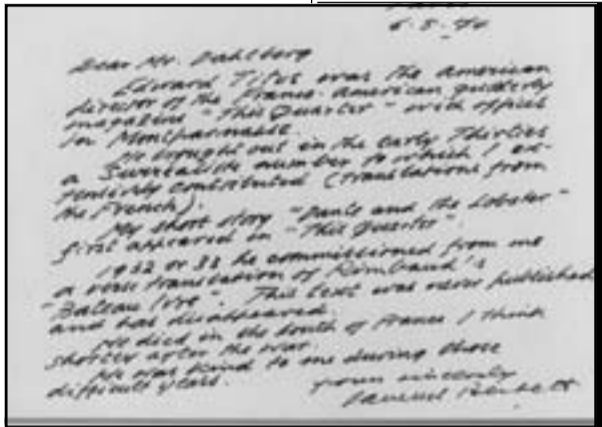 Paris
6.5.74
Dear Mr. Dahlberg
Edward Titus was the American
director of the Franco-American quarterly
magazine "This Quarter" with offices
in Montparnasse.
He brought out in the early Thirties
a Surrealist number to which I ex-
tensively contributed (translations from
the French).
My short story "Dante and the Lobster"
first appeared in "This Quarter".
1932 or 33 he commissioned from me
a verse translation of Rimbaud's
"Bateau Ivre". This text was never published
and has disappeared.
He died in the South of France I think
shortly after the war.
He was kind to me during those
difficult years.
yours sincerely
Samuel Beckett